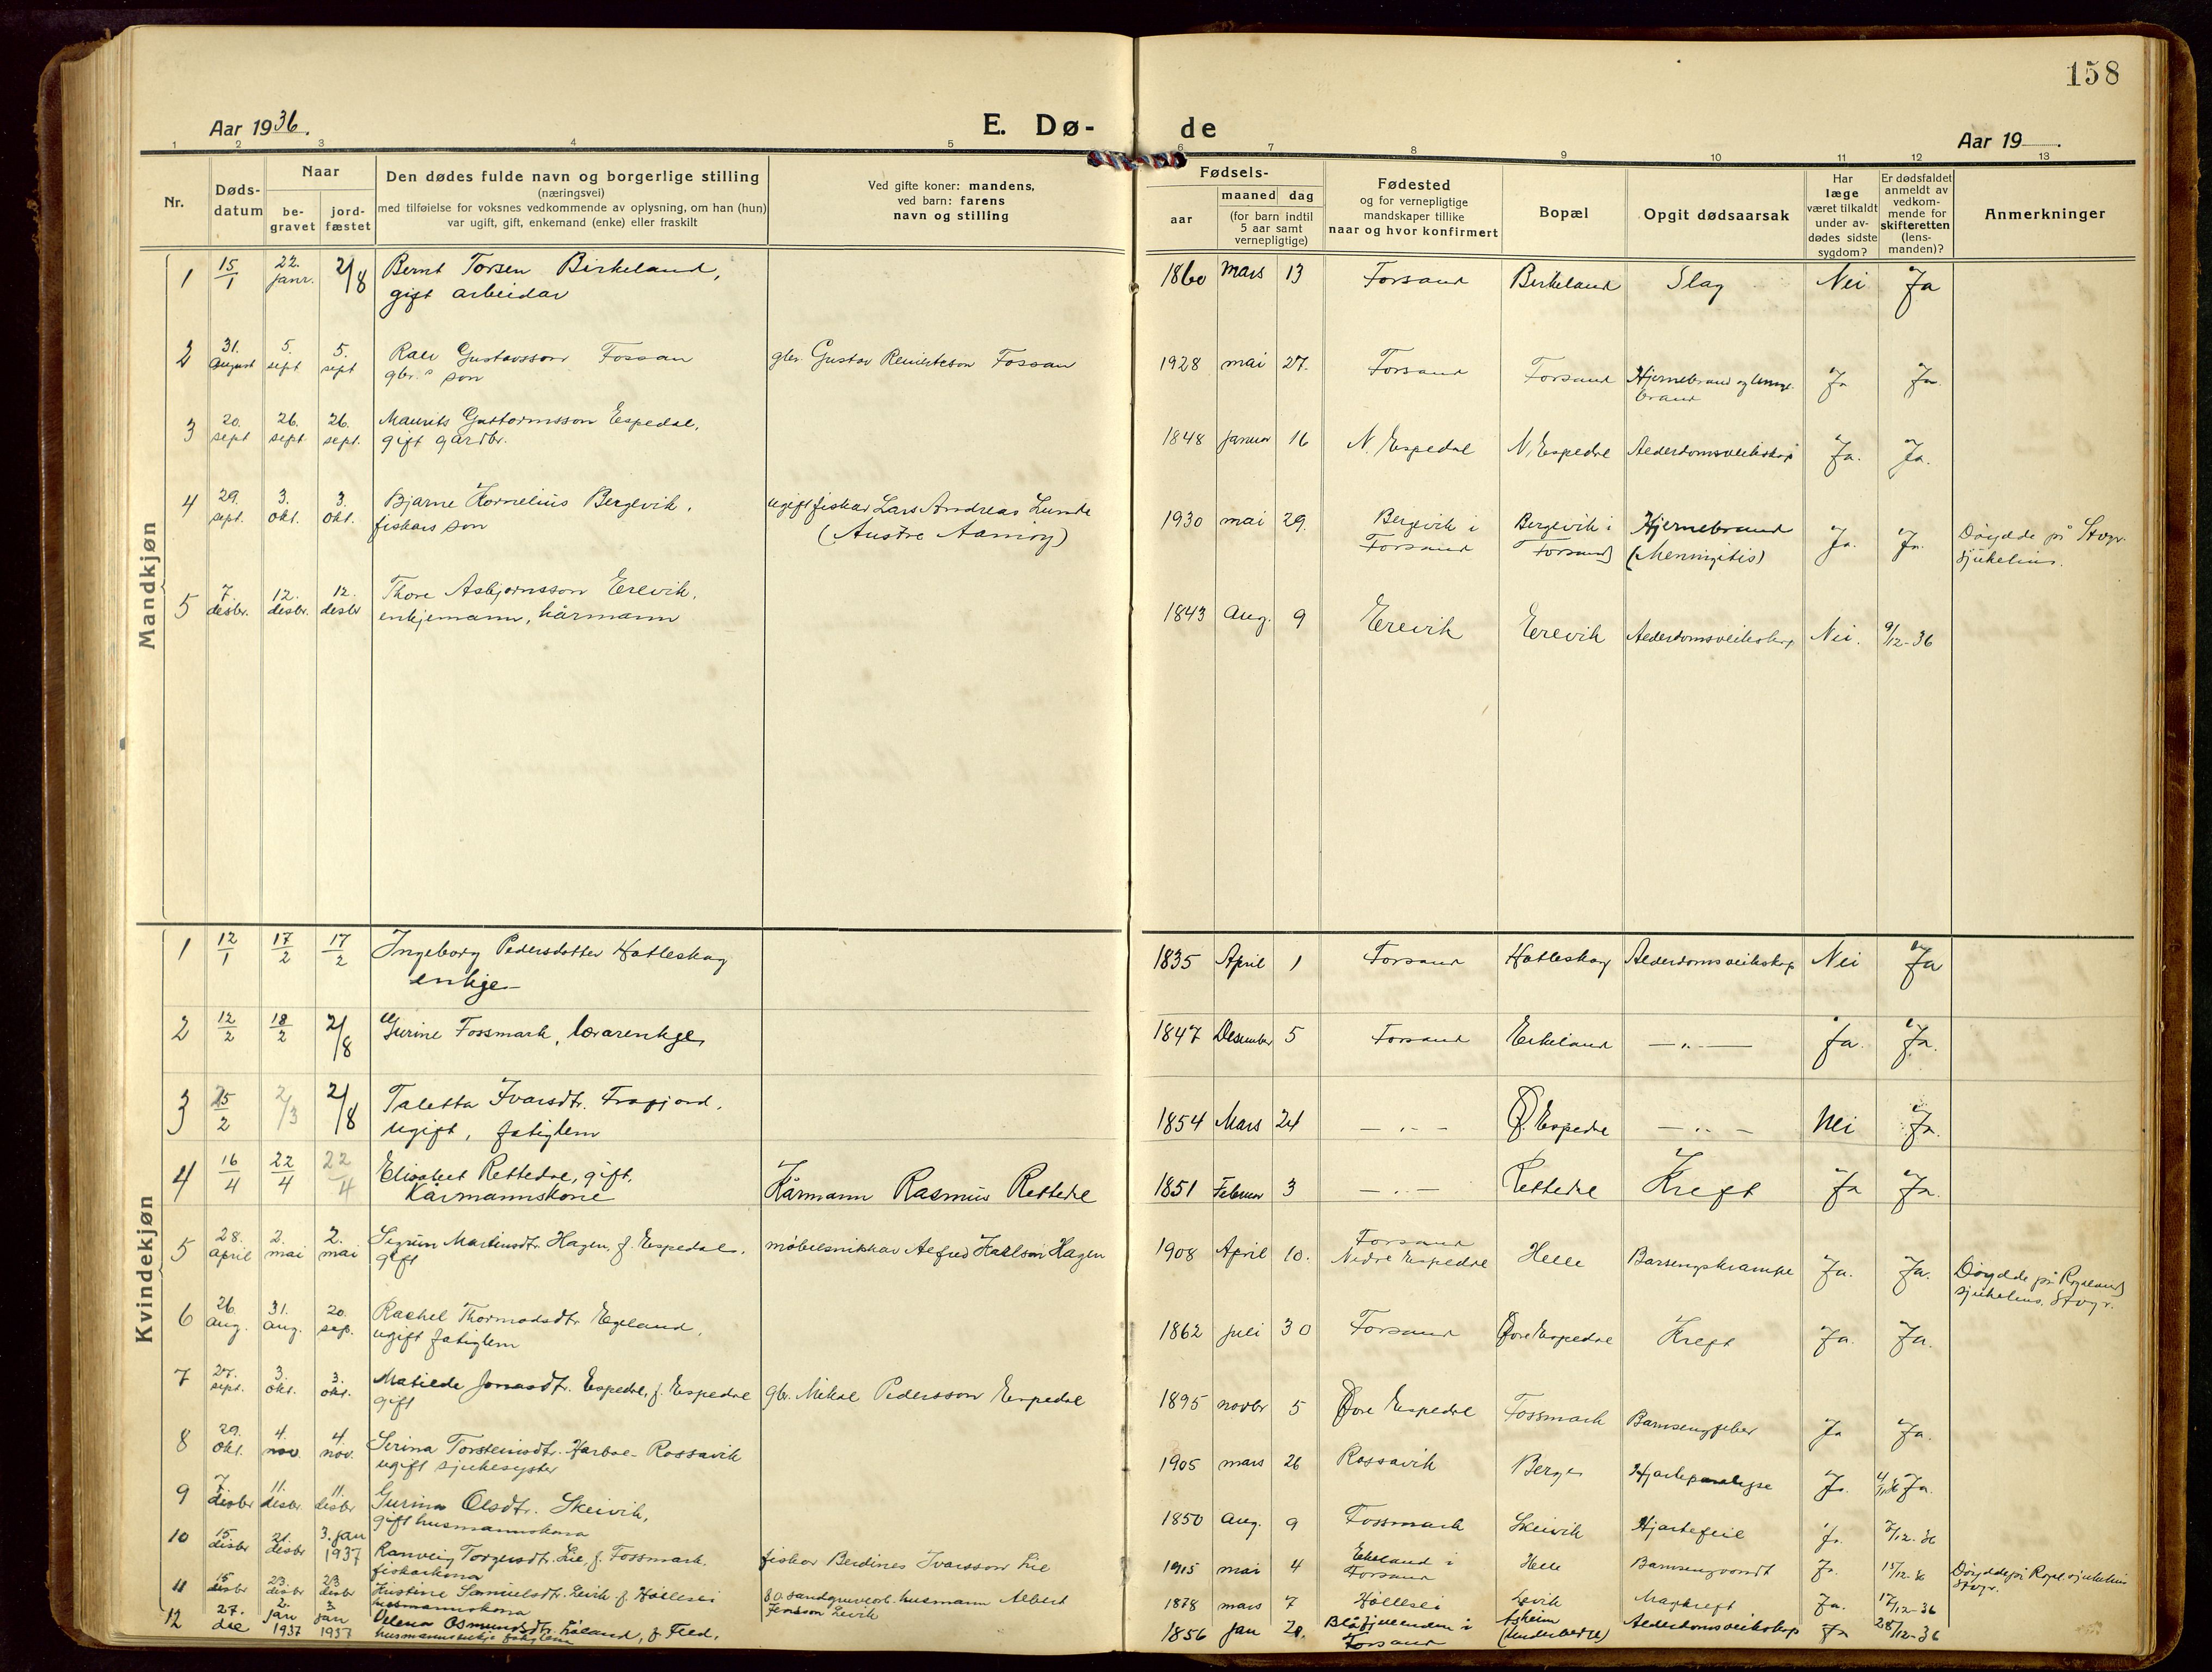 158
Aar 1936.
E. Dø- de
Aar 19 .
1 2 3 4 5 6 7 8 9 10 11 12 13
Nr.
Døds-
datum
Naar
be-
gravet
jord-
fæstet
Den dødes fulde navn og borgerlige stilling
(næringsvei)
med tilføielse for voksnes vedkommende av oplysning, om han (hun)
var ugift, gift, enkemand (enke) eller fraskilt
Ved gifte koner: mandens,
ved barn: farens
navn og stilling
Fødsels-
aar
maaned dag
(for barn indtil
5 aar samt
vernepligtige)
Fødested
og for vernepligtige
mandskaper tillike
naar og hvor konfirmert
Bopæl
Opgit dødsaarsak
Har
læge
været tilkaldt
under av-
dødes sidste
sygdom?
Er dødsfaldet
anmeldt av
vedkom-
mende for
skifteretten
(lens-
manden)?
Anmerkninger
Mandkjøn
1 15/1 22. janr. 2/8 Bernt Torsen Birkeland, 1860 mars 13 Forsand Birkeland Slag Nei Ja
gift arbeidar
2 31. august 5. sept 5. sept Gustavsson Fossan gbr. Gustav Fossan 1928 mai 27. Forsand Forsand Hjernebrand og Ja Ja.
gbr.s son
3 20. sept 26. sept. 26. sept. Maurits Guttormsson Espedal, 1848 januar 16 N. Espedal N. Espedal Alderdomsveikskap Ja. Ja.
gift gardbr.
4 29. sept. 3. okt. 3. okt. Bjarne Kornelius Bergevik, ugift fiskar Lars Andreas Lunde 1930 mai 29. Bergevik i Forsand Bergevik i Forsand Hjernebrand Ja. Ja. Døydde på Stvgr.
fiskars son (Austre Aamøy) (Meningitis) sjukehus.
5 7. desbr. 12. desbr. 12. desbr Thore Asbjørnsson Erevik, 1843 Aug. 9 Erevik Erevik Alderdomsveikskap Nei. 9/12-36
enkjemann, kårmann
Kvindekjøn
1 12/1 17/2 17/2 Ingeborg Pedersdotter Hatleskog 1835 April 1 Forsand Hatleskog Alderdomsveikskap Nei Ja
enkje
2 12/2 18/2 2/8 Gurine Fossmark, lærarenkje 1847 Desember 5 Forsand Eikeland — " — Ja. Ja.
3 25/2 2/3 2/8 Taletta Ivarsdtr. Frafjord. 1854 Mars 24 — " — Ø. Espedal — " — Nei Ja.
ugift, fatiglem
4 16/4 22/4 22/4 Elisabet Rettedal, gift, Kårmann Rasmus Rettedal 1851 Februar 3 — " — Rettedal Kreft Ja Ja.
Kårmannskone
5 28. april 2. mai 2. mai Sigrun Martinsdtr. Hagen, f. Espedal. møbelsnikkar Alfred Karlson Hagen 1908 April 10. Forsand Nedre Espedal Helle Barsengskrampe Ja. Ja. Døydde på Rogaland
gift sjukehus, Stvgr.
6 26. aug. 31. aug. 20. sep. Rachel Thormodsdtr. Egeland, 1862 juli 30 Forsand Øvre Espedal Kreft Ja. Ja.
ugift fatiglem
7 27. sept. 3. okt. 3. okt. Matilde Jonasdtr. Espedal, f. Espedal gbr. Mikal Pedersson Espedal 1895 novbr 5 Øvre Espedal Fossmark Barnsengfeber Ja Ja.
gift
8 29. okt. 4. nov. 4. nov. Serina Torsteinsdtr. Rossavik 1905 mars 26 Rossavik Berge Ja. Ja.
ugift sjukesyster
9 7. desbr 11. desbr. 11. desbr Gurina Olsdtr. Skeivik, 1850 aug. 9 Fossmark Skeivik Hjartefeil Ja. 7/12-36
gift husmannskona
10 15. desbr 21. desbr 3. jan 1937 Ranveig Torgersdtr. Lie, f. Fossmark. fiskar Berdines Ivarsson Lie 1915 mai 4 Eikeland i Forsand Helle Barnsengvondt Ja. 15/12-36 Døydde på Rogl. sjukehus
fiskarkona Stvgr.
11 15. desbr 23. desbr 23. desbr Kristine Samuelsdtr. Levik f. Høllesli husmann Albert 1878 mars 7 Høllesli Levik Magkreft Ja. 17/12-36
husmannskona Levik
12 27. des 2. jan 1937 3. jan 1937 Velena Osmundsdtr. f. Fled. 1856 jan 20. i Forsand Askeim Alderdomsveikskap Ja 28/12-36
husmannsenkje fatiglem